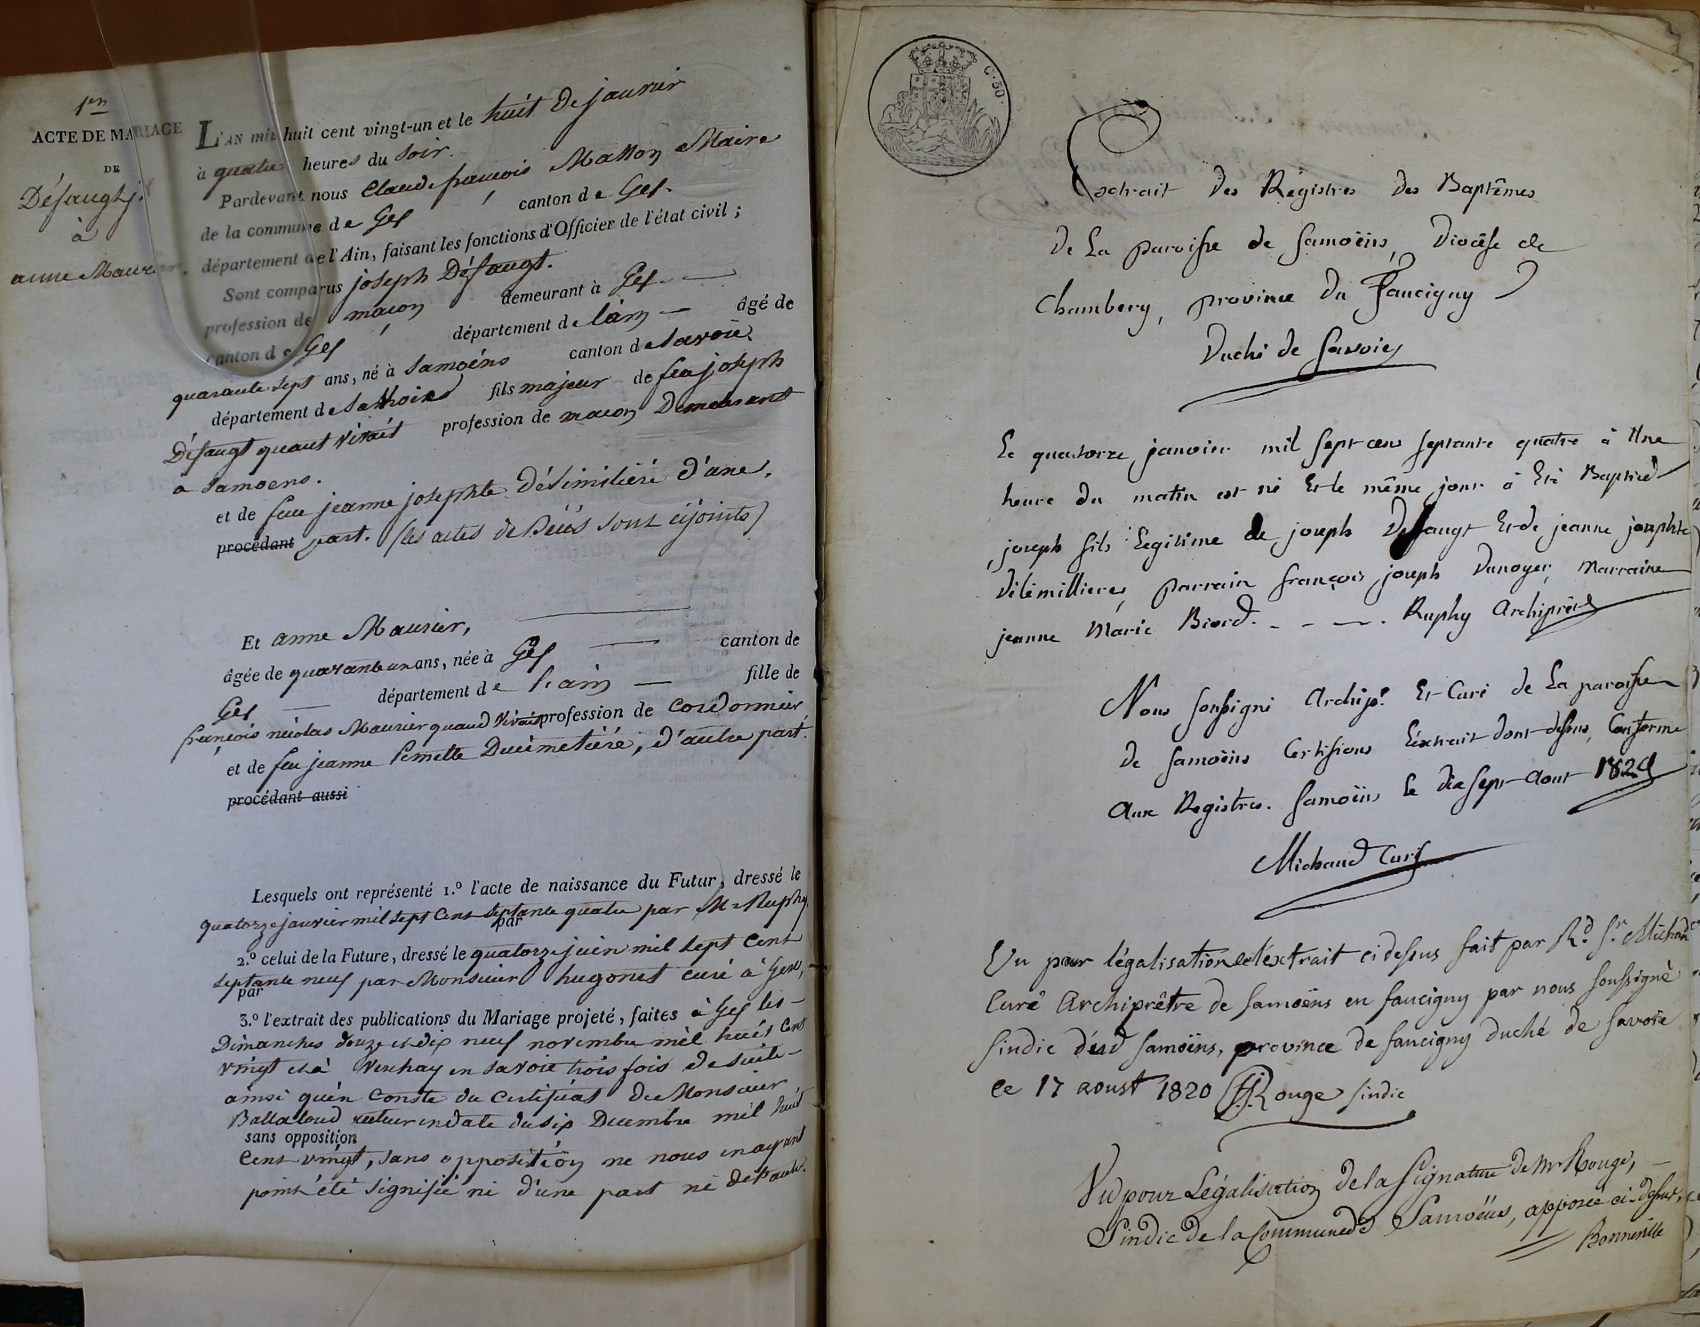 1er
ACTE DE MARIAGE
DE
Désaugt j.
à
anne Maurier.
L'AN mil huit cent vingt-un et le huit De janvier
à quatre heures du Soir.
Pardevant nous Claude françois Matton Maire
de la commune de Gex canton de Gex.
département de l'Ain, faisant les fonctions d'Officier de l'état civil ;
Sont comparus joseph Désaugt.
profession de maçon demeurant à Gex.
canton de Gex département de l'ain âgé de
quarante sept ans, né à Samoëns canton de Savoie
département de fils majeur de feu joseph
Désaugt quant vivait profession de maçon Demeurant
a Samoens.
et de feue jeanne josephte Désimilière d'une,
procédant part. (les actes de Décès sont cijoints)
Et anne Maurier,
âgée de quarante un ans, née à Gex canton de
Gex département de l'ain fille de
françois nicolas Maurier quand vivait profession de cordonnier
et de feu jeanne Pernette Ducimetière, d'autre part.
procédant aussi
Lesquels ont représenté 1.º l'acte de naissance du Futur, dressé le
quatorze janvier mil sept Cent septante quatre par Mr Ruphy
par
2.º celui de la Future, dressé le quatorze juin mil sept Cent
septante neuf par Monsieur hugonet curé à Gex,
par
3.º l'extrait des publications du Mariage projeté, faites à Gex les
Dimanches douze et dix neuf novembre mil huit Cent
vingt et à en Savoie trois fois de suite
ainsi qu'en Conste du Certificat de Monsieur
Ballaloud recteur en date du six Decembre mil huit
sans opposition
Cent vingt, sans opposition ne nous en ayant
point été signifié ni d'une part ni de l'autre.
C. 30.
Extrait des Régistres des Baptêmes
De La paroisse de Samoëns, Diocèse de
Chambery, province du Faucigny
Duché de Savoie
Le quatorze janvier mil sept cens septante quatre à Une
heure du matin est né Et le même jour à Eté Baptisé
joseph fils Legitime de joseph Désaugt Et de jeanne josephte
Délémillieres, parrain françois joseph Dunoyer, Marraine
jeanne Marie Biord. - - - . Ruphy Archiprêtre
Nous soussigné Archip.e Et Curé de La paroisse
de Samoëns Certifions L'extrait dont dessus, Conforme
Aux Registres. Samoëns le dix sept Aout 1820
Michaud Curé
Vu pour légalisation de l'extrait ci dessus fait par R.d S.r Michaud
Curé Archiprêtre de Samoëns en faucigny par nous soussigné
Sindic dud Samoëns, province de faucigny duché de Savoie
ce 17 aoust 1820 Rouge Sindic
Vu pour Légalisation de la Signature de Mr Rouge,
Sindic de la Commune de Samoëns, apposée ci-dessus,
Bonneville